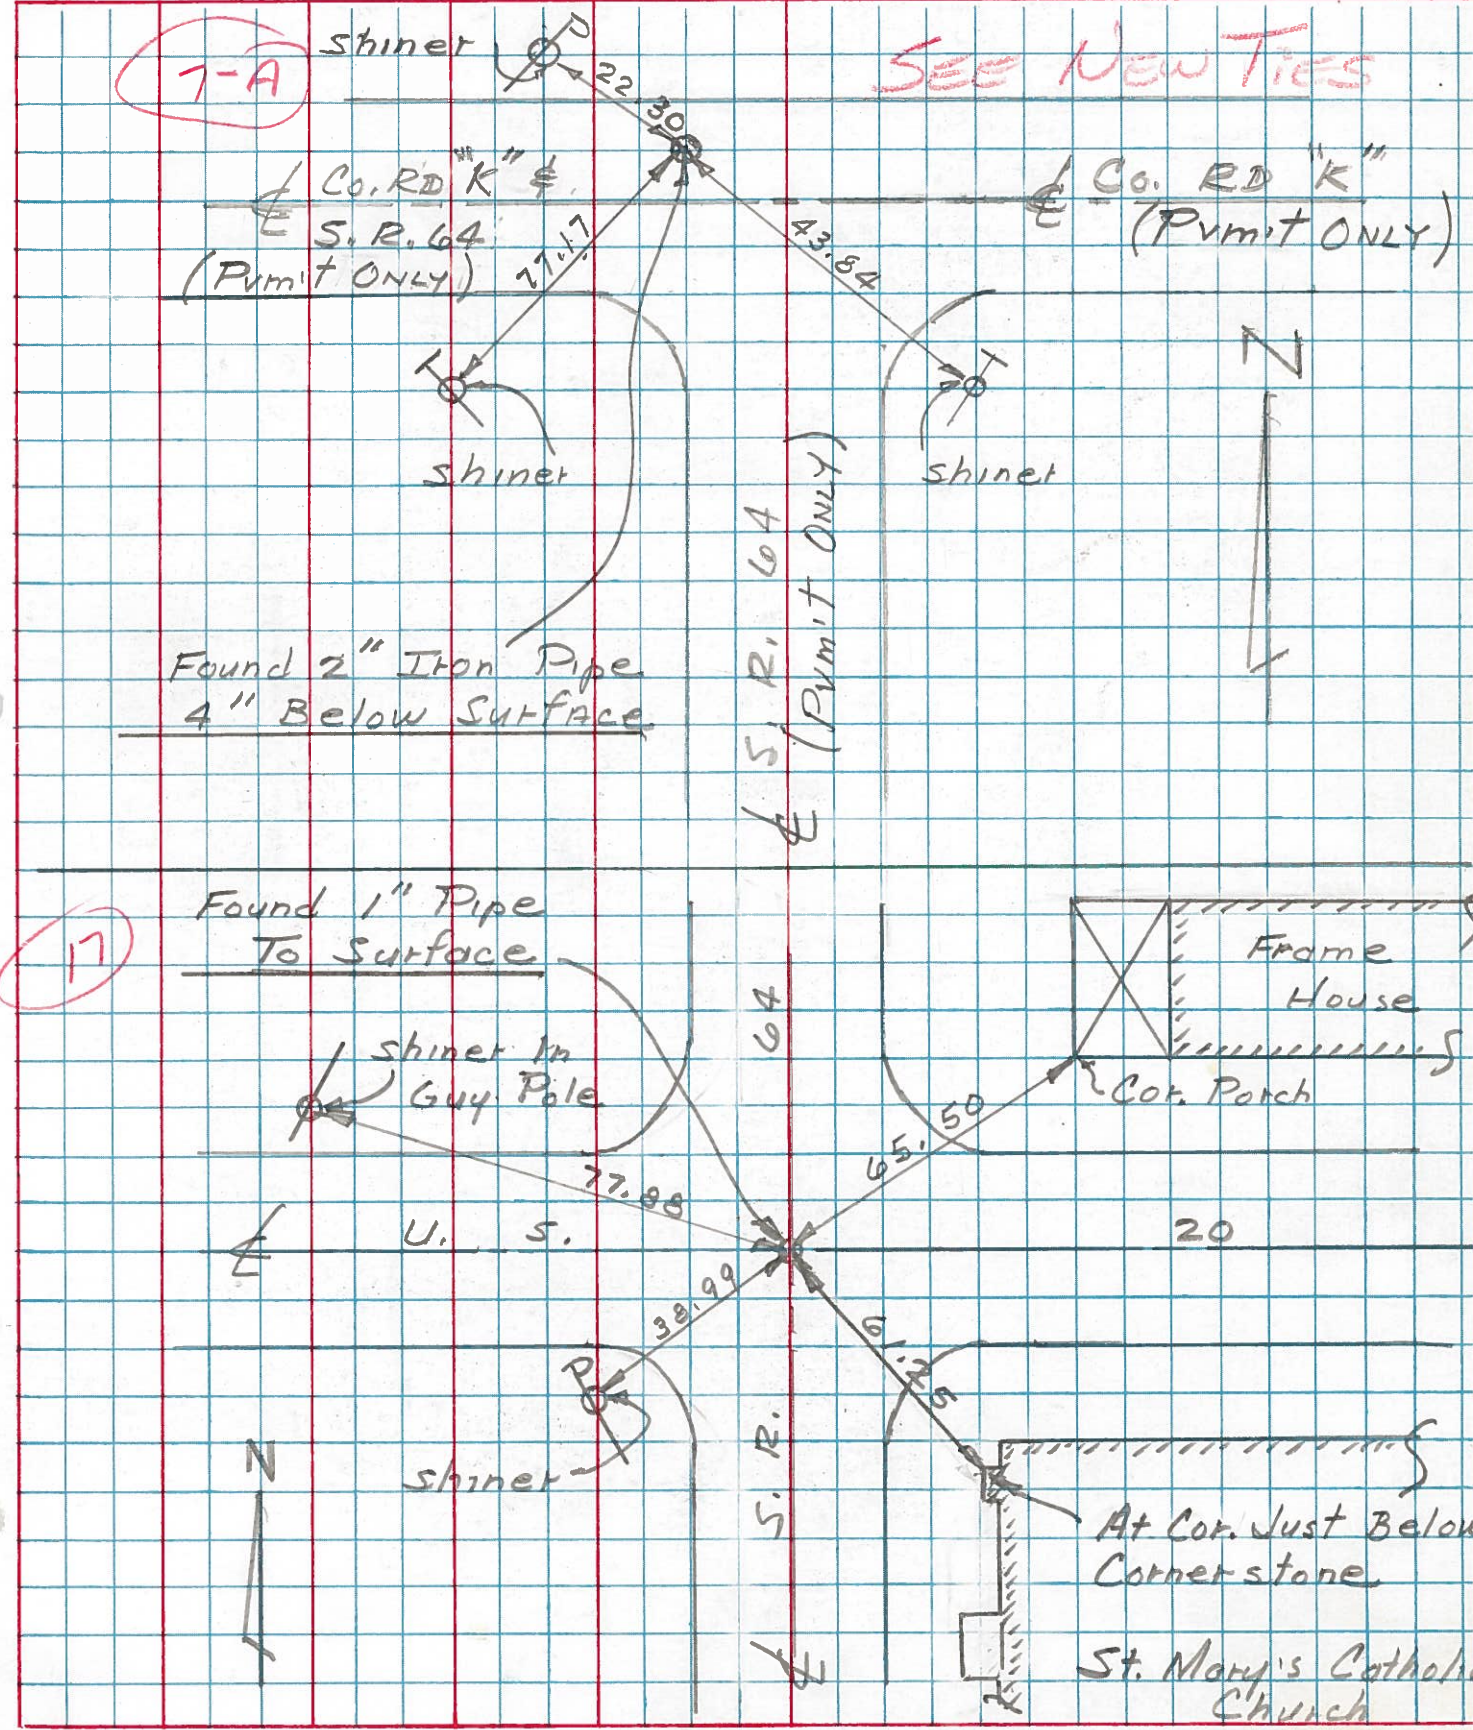 7-A
shiner
P
SEE NEW TIES
22.30
℄ Co. RD "K" &
S.R. 64
(Pvmit ONLY)
℄ Co. RD "K"
(Pvmit ONLY)
27.17
43.84
T
T
N
shiner
shiner
℄ S. R. 64
(Pvmit ONLY)
Found 2" Iron Pipe
4" Below Surface
17
Found 1" Pipe
To Surface
Frame
House
64
shiner In
Guy Pole
Cor. Porch
65.50
77.88
℄ U. S. 20
38.99
61.25
P
shiner
N
℄ S. R.
At Cor. Just Below
Cornerstone
St. Mary's Catholic
Church